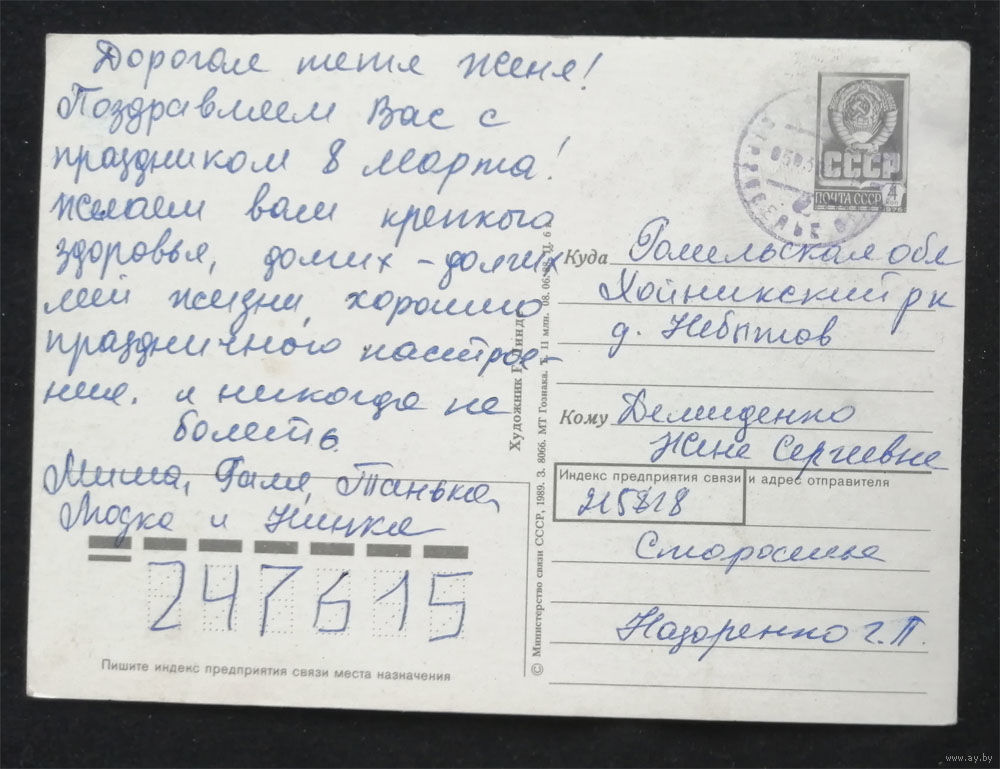 Дорогая тетя Женя!
Поздравляем Вас с
праздником 8 марта!
Желаем вам крепкого
здоровья, долгих - долгих
лет жизни, хорошего
праздничного настрое-
ния. и никогда не
болеть.
Миша, Галя, Танька,
и Нинка
247615
Пишите индекс предприятия связи места назначения
© Министерство связи СССР, 1989. З. 8066. МТ Гознака. 11 млн. 08. 06. 88. Ц. 6 к.
Художник
СССР
ПОЧТА СССР
Куда Гомельская обл
Хойникский рн
д. Небытов
Кому Демиденко
Жене Сергеевне
Индекс предприятия связи и адрес отправителя
Назаренко Г.П.
www.ay.by